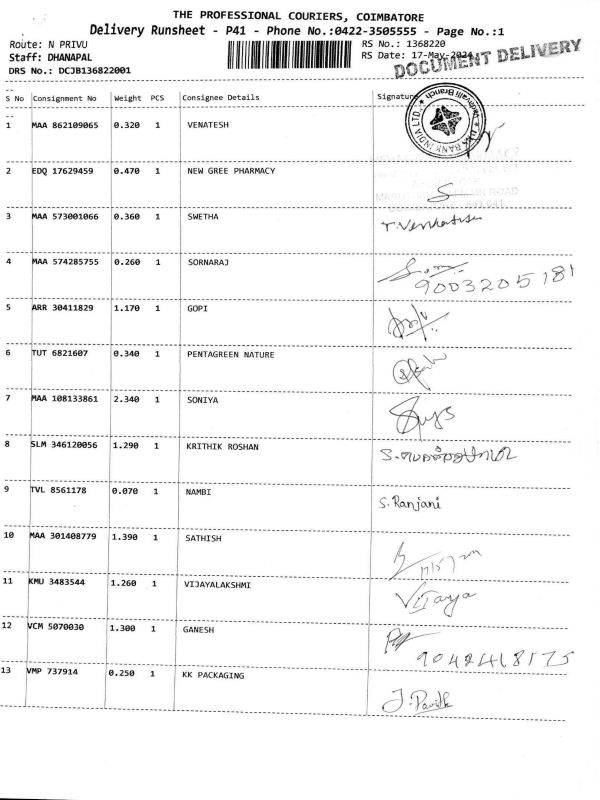 THE PROFESSIONAL COURIERS, COIMBATORE
Delivery Runsheet - P41 - Phone No.:0422-3505555 - Page No.:1
Route: N PRIVU RS No.: 1368220
Staff: DHANAPAL RS Date: 17-May-2024
DRS No.: DCJB136822001 DOCUMENT DELIVERY
S No Consignment No Weight PCS Consignee Details Signature
1 MAA 862109065 0.320 1 VENATESH
2 EDQ 17629459 0.470 1 NEW GREE PHARMACY
3 MAA 573001066 0.360 1 SWETHA
4 MAA 574285755 0.260 1 SORNARAJ
9003205181
5 ARR 30411829 1.170 1 GOPI
6 TUT 6821607 0.340 1 PENTAGREEN NATURE
7 MAA 108133861 2.340 1 SONIYA
8 SLM 346120056 1.290 1 KRITHIK ROSHAN
9 TVL 8561178 0.070 1 NAMBI S. Ranjani
10 MAA 301408779 1.390 1 SATHISH
11 KMU 3483544 1.260 1 VIJAYALAKSHMI Vijaya
12 VCM 5070030 1.300 1 GANESH
9042418175
13 VMP 737914 0.250 1 KK PACKAGING